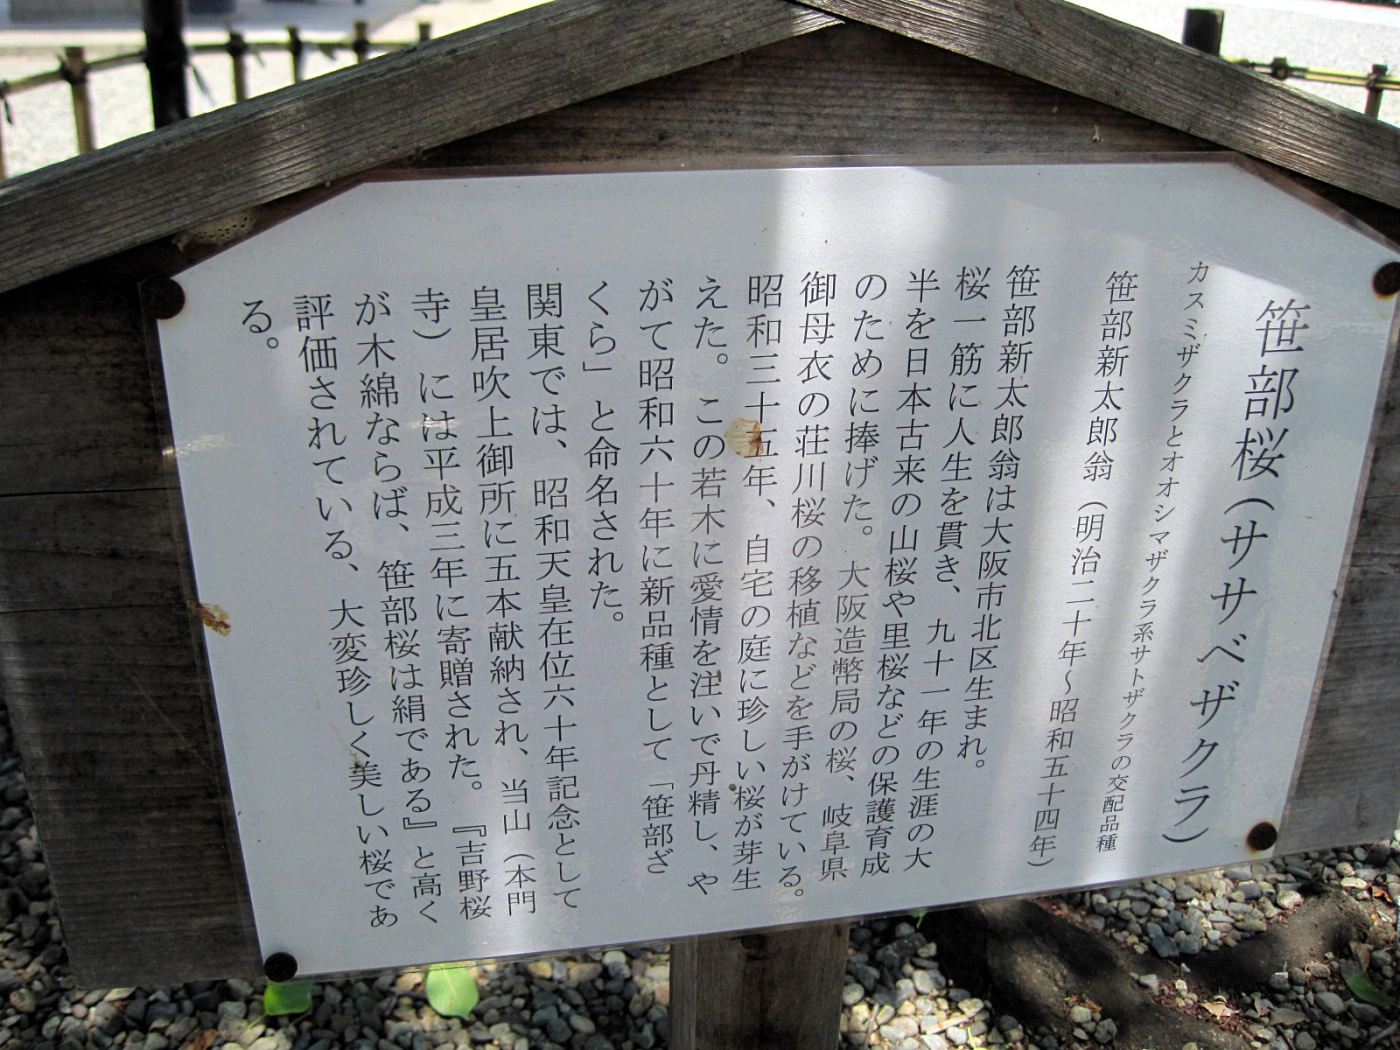 笹部桜（ササベザクラ）
カスミザクラとオオシマザクラ系サトザクラの交配品種
笹部新太郎翁（明治二十年～昭和五十四年）
笹部新太郎翁は大阪市北区生まれ。
桜一筋に人生を貫き、九十一年の生涯の大
半を日本古来の山桜や里桜などの保護育成
のために捧げた。大阪造幣局の桜、岐阜県
御母衣の荘川桜の移植などを手がけている。
昭和三十五年、自宅の庭に珍しい桜が芽生
えた。この若木に愛情を注いで丹精し、や
がて昭和六十年に新品種として「笹部ざ
くら」と命名された。
関東では、昭和天皇在位六十年記念として
皇居吹上御所に五本献納され、当山（本門
寺）には平成三年に寄贈された。『吉野桜
が木綿ならば、笹部桜は絹である』と高く
評価されている、大変珍しく美しい桜であ
る。